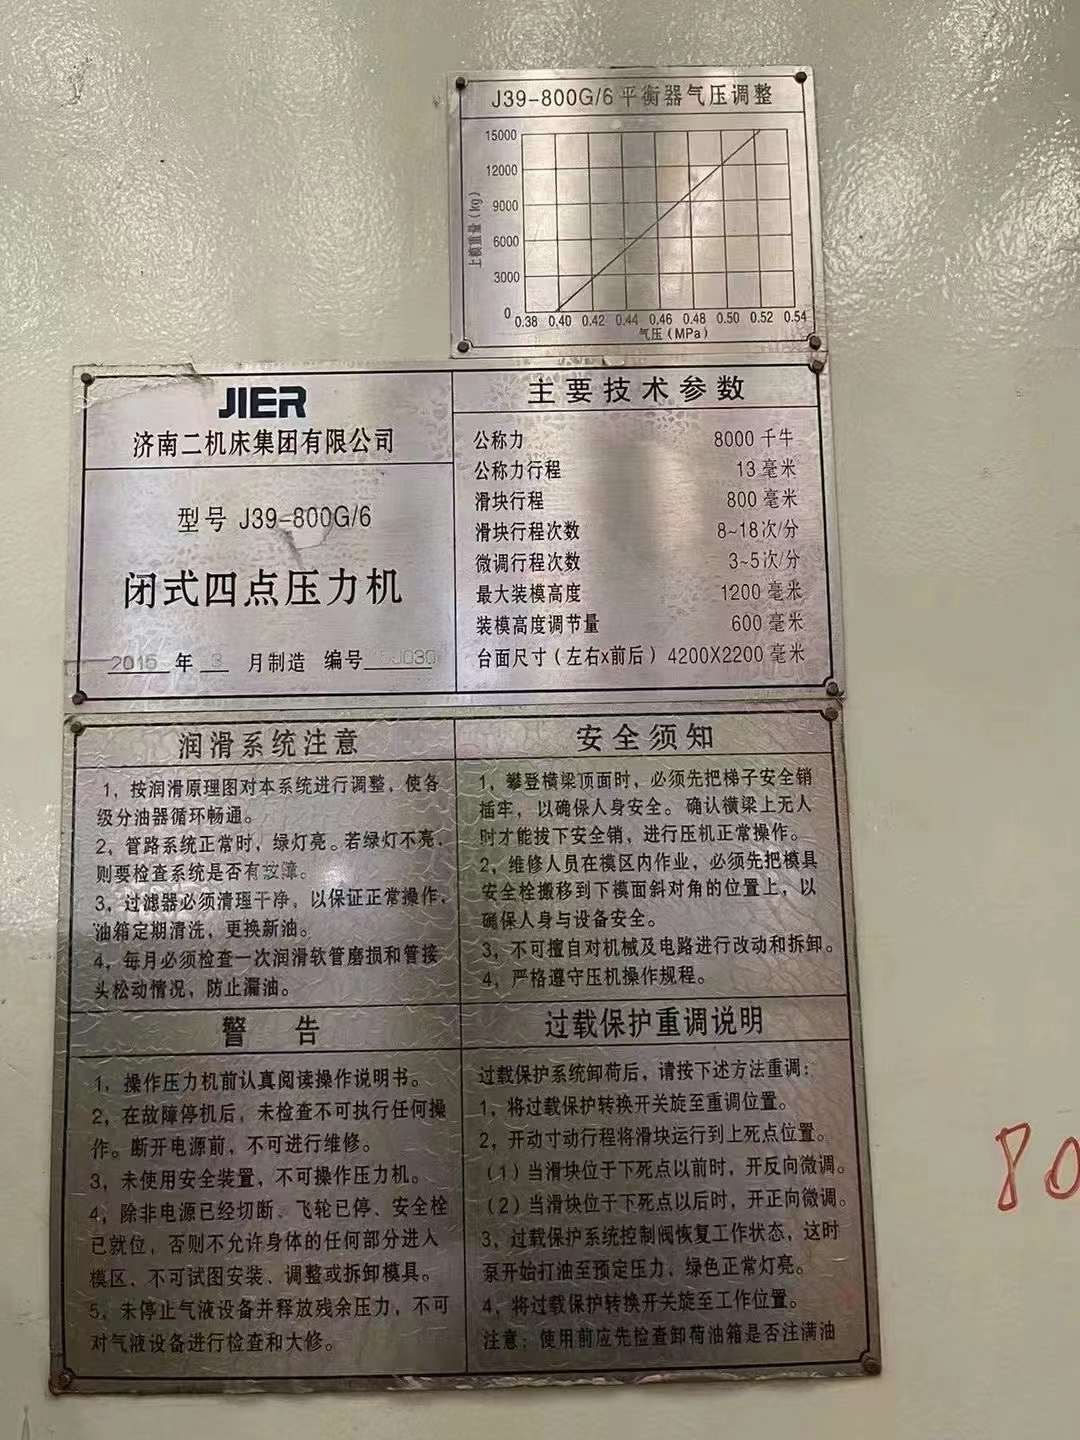 J39-800G/6平衡器气压调整
上模重量(kg)
15000
12000
9000
6000
3000
0
0.38 0.40 0.42 0.44 0.46 0.48 0.50 0.52 0.54
气压(MPa)
JIER
济南二机床集团有限公司
型号 J39-800G/6
闭式四点压力机
年 3 月制造 编号
主要技术参数
公称力 8000千牛
公称力行程 13毫米
滑块行程 800毫米
滑块行程次数 8~18次/分
微调行程次数 3~5次/分
最大装模高度 1200毫米
装模高度调节量 600毫米
台面尺寸(左右x前后) 4200X2200毫米
润滑系统注意
1，按润滑原理图对本系统进行调整，使各
级分油器循环畅通。
2，管路系统正常时，绿灯亮。若绿灯不亮，
则要检查系统是否有故障。
3，过滤器必须清理干净，以保证正常操作，
油箱定期清洗，更换新油。
4，每月必须检查一次润滑软管磨损和管接
头松动情况，防止漏油。
安全须知
1，攀登横梁顶面时，必须先把梯子安全销
插牢，以确保人身安全。确认横梁上无人
时才能拔下安全销，进行压机正常操作。
2，维修人员在模区内作业，必须先把模具
安全栓搬移到下模面斜对角的位置上，以
确保人身与设备安全。
3，不可擅自对机械及电路进行改动和拆卸。
4，严格遵守压机操作规程。
警 告
1，操作压力机前认真阅读操作说明书。
2，在故障停机后，未检查不可执行任何操
作。断开电源前，不可进行维修。
3，未使用安全装置，不可操作压力机。
4，除非电源已经切断、飞轮已停、安全栓
已就位，否则不允许身体的任何部分进入
模区，不可试图安装、调整或拆卸模具。
5，未停止气液设备并释放残余压力，不可
对气液设备进行检查和大修。
过载保护重调说明
过载保护系统卸荷后，请按下述方法重调：
1，将过载保护转换开关旋至重调位置。
2，开动寸动行程将滑块运行到上死点位置。
(1)当滑块位于下死点以前时，开反向微调。
(2)当滑块位于下死点以后时，开正向微调。
3，过载保护系统控制阀恢复工作状态，这时
泵开始打油至预定压力，绿色正常灯亮。
4，将过载保护转换开关旋至工作位置。
注意：使用前应先检查卸荷油箱是否注满油
80